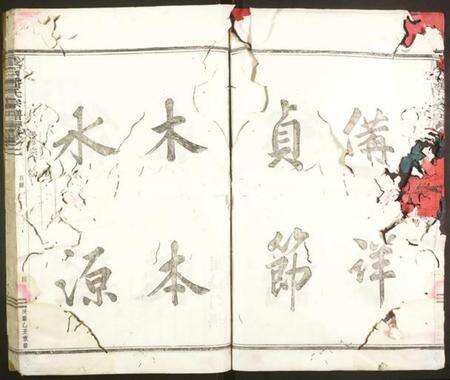 備詳
貞節
木本
水源